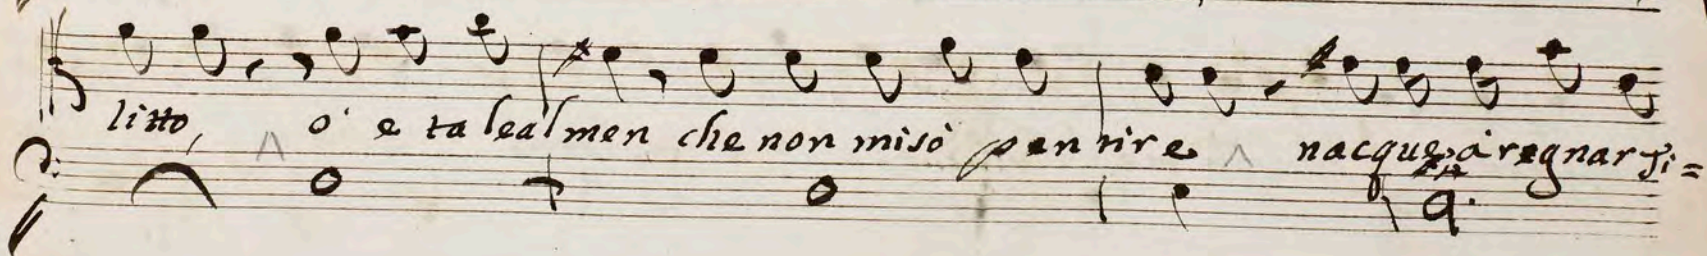 litto o' e ta leal men che non misò pentire nacque à regnar Ti=